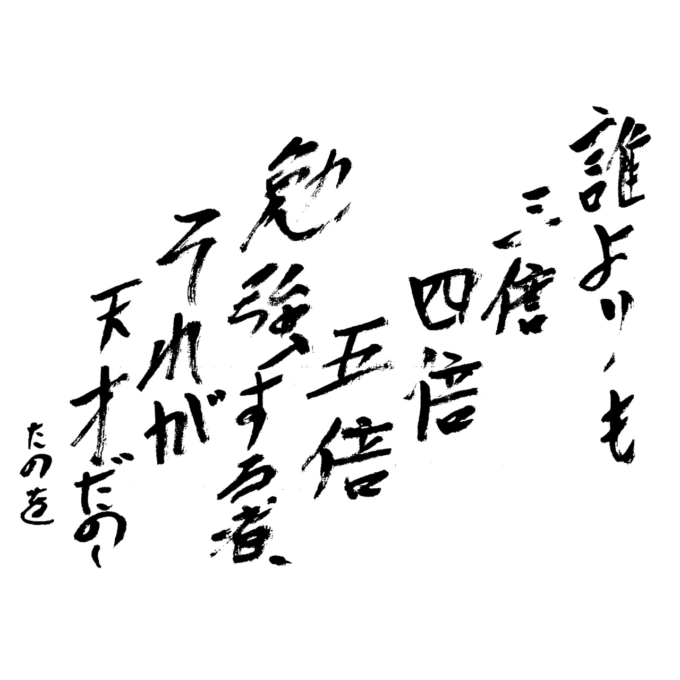 誰よりも
三倍
四倍
五倍
勉強する者、
それが
天才だの、
たのを